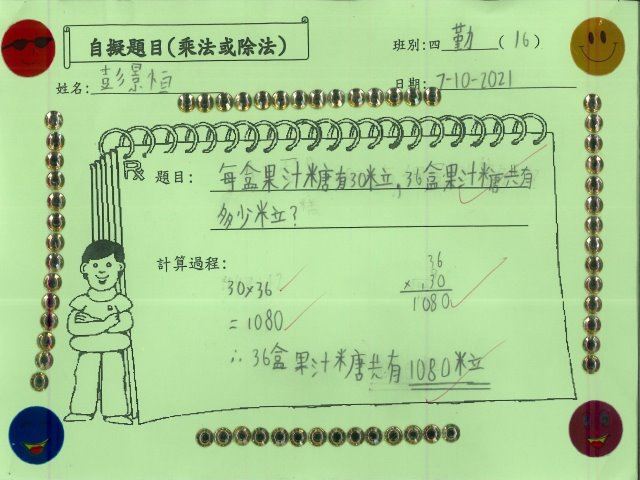 自擬題目(乘法或除法)
班別:四 勤 (16)
姓名: 彭景恒
日期: 7-10-2021
題目: 每盒果汁糖有30粒,36盒果汁糖共有
多少粒?
計算過程:
30×36
36
×30
1080
=1080
∴36盒果汁糖共有1080粒